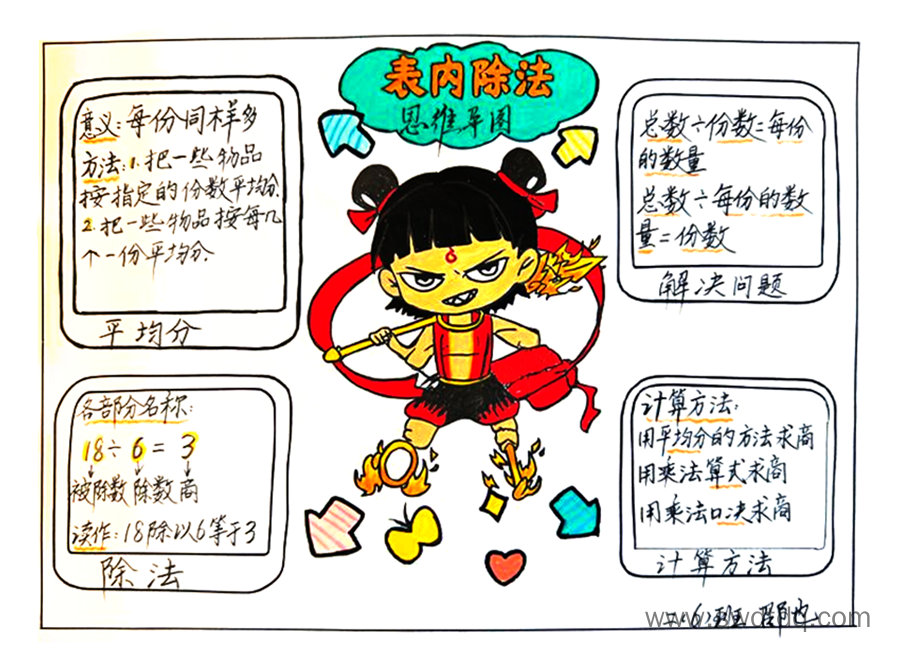 表内除法
思维导图
意义:每份同样多
方法:1.把一些物品
按指定的份数平均分.
2.把一些物品按每几
个一份平均分.
平均分
总数÷份数=每份
的数量
总数÷每份的数
量=份数
解决问题
各部分名称:
18÷6=3
被除数 除数 商
读作:18除以6等于3
除法
计算方法:
用平均分的方法求商
用乘法算式求商
用乘法口决求商
计算方法
二.(6)班